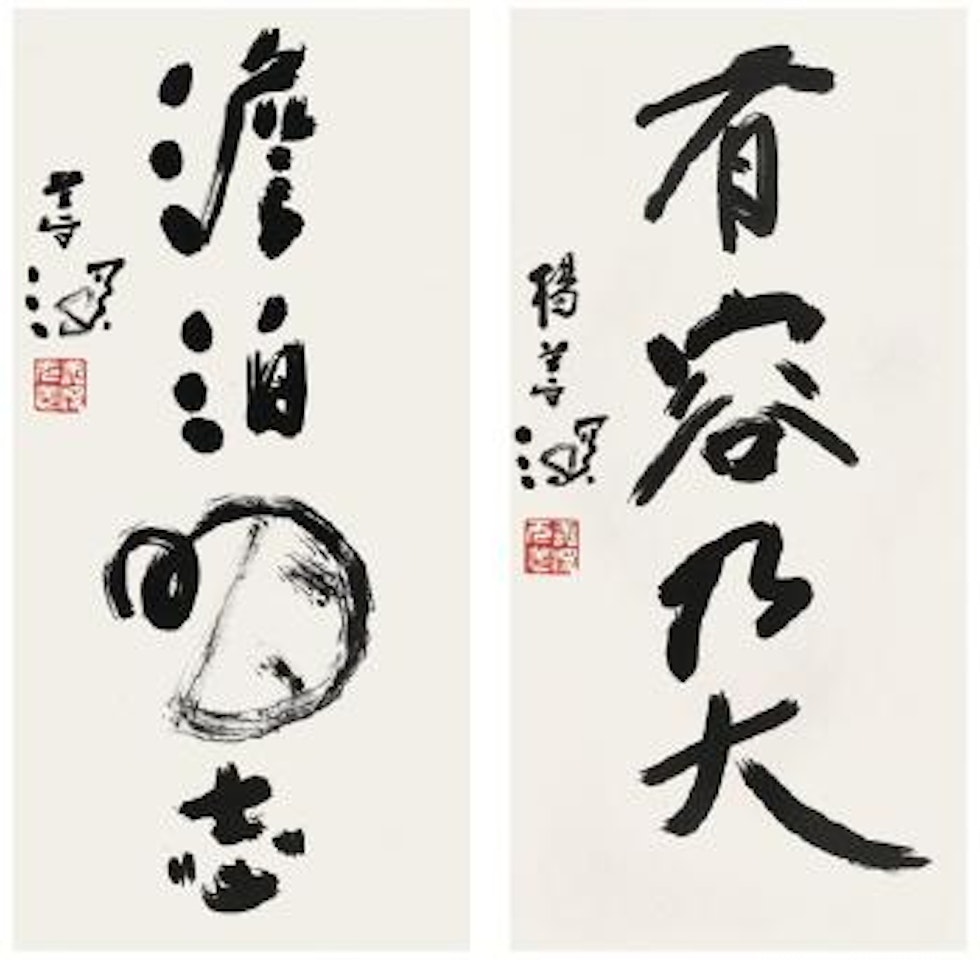 有容乃大
楊善深
澹泊明志
善深